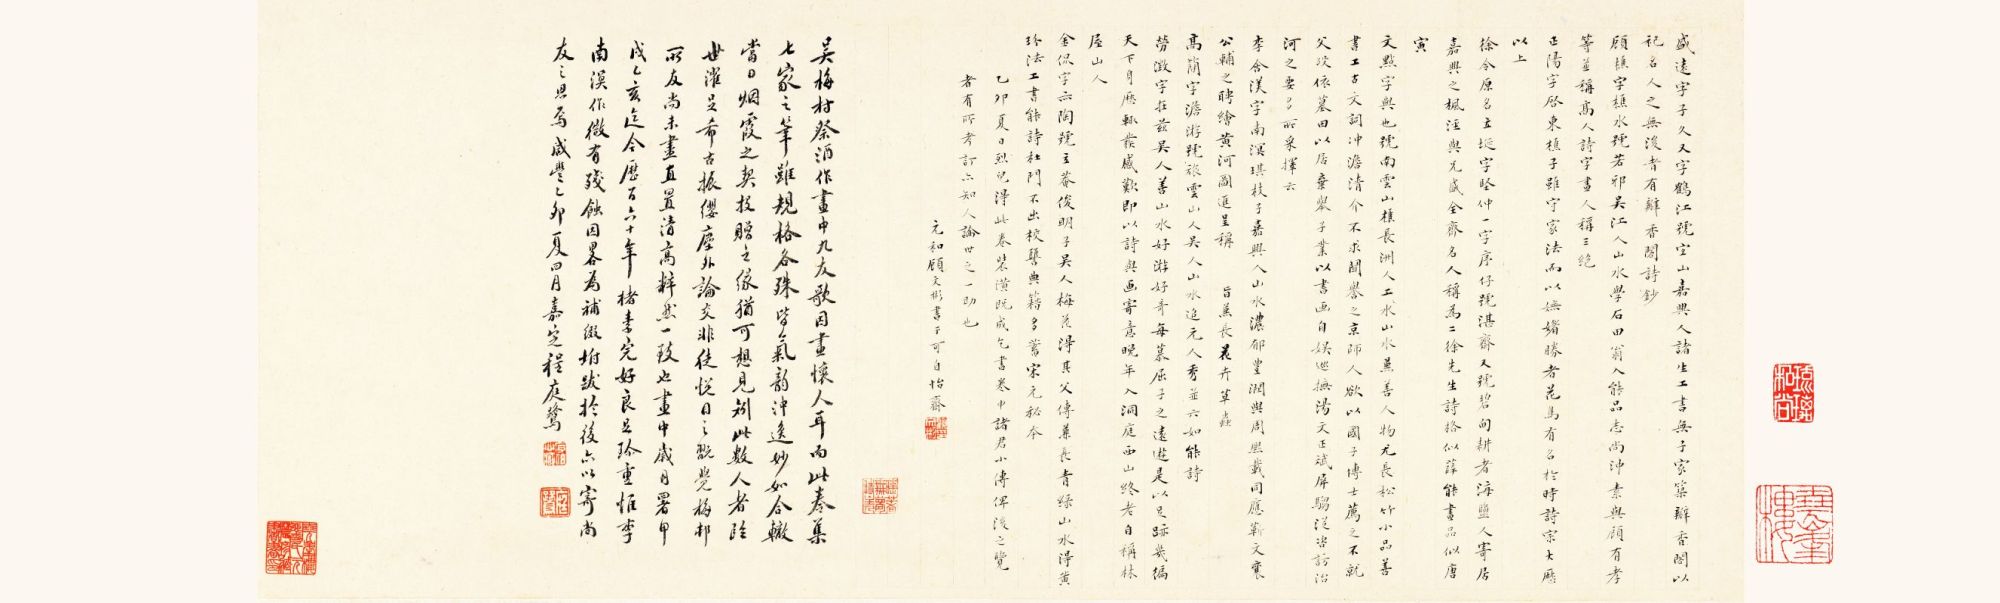 盛遠字子久又字鶴江號空山嘉興人諸生工書無子家築瓣香閣以
祀名人之無後者有瓣香閣詩鈔
顧樵字樵水號若邪吳江人山水學石田翁入能品志尚沖素與顧有孝
等並稱高人詩字畫人稱三絶
正陽字啟東樵子雖守家法而以嫵媚勝者花鳥有名於時詩宗大歷
以上
徐令原名立埏字堅仲一字序仔號湛齋又號碧甸耕者海鹽人寄居
嘉興之楓涇與兄咸全齋名人稱為二徐先生詩格似薛能畫品似唐
寅
文點字與也號南雲山樵長洲人工水山水兼善人物尤長松竹小品善
書工古文詞沖澹清介不求聞譽之京師人欲以國子博士薦之不就
父歿依墓田以居棄舉子業以書画自娛巡撫湯文正斌屏騶從咨訪治
河之要多所采擇云
李含渼字南溟琪枝子嘉興人山水濃郁豊潤與周照載同應靳文襄
公輔之聘繪黃河圖進呈稱 旨兼長花卉草蟲
高簡字澹游號旅雲山人吳人山水追元人秀並六如能詩
勞澂字在茲吳人善山水好游好奇每慕屈子之遠遊是以足跡幾徧
天下身歷輒業感歎即以詩與画寄意晚年入洞庭西山終老自稱林
屋山人
金侃字亦陶號立菴俊明子吳人梅花得其父傳兼長青綠山水得黃
珍法工書能詩杜門不出校讐典籍多蓄宋元秘本
乙卯夏日烈兒得此卷裝潢既成乞書卷中諸君小傳俾後之覽
者有所考訂亦知人論世之一助也
元和顧文彬書于可自怡齋
吳梅村祭酒作畫中九友歌因畫懷人耳而此卷集
七家之筆雖規格各殊皆氣韵沖逸妙如合轍
當日烟霞之契投贈之緣猶可想見矧此數人者強
世濯足希古振纓塵外論交非徒悅目之翫覺梅邨
所友尚未畫直置清高粹然一致也畫中歲月署甲
戌乙亥迄今歷百六十年楮素完好良足珍重惟李
南溟作微有殘蝕因畧為補綴坿跋於後亦以寄尚
友之思焉咸豐乙卯夏四月嘉定程庭鷺